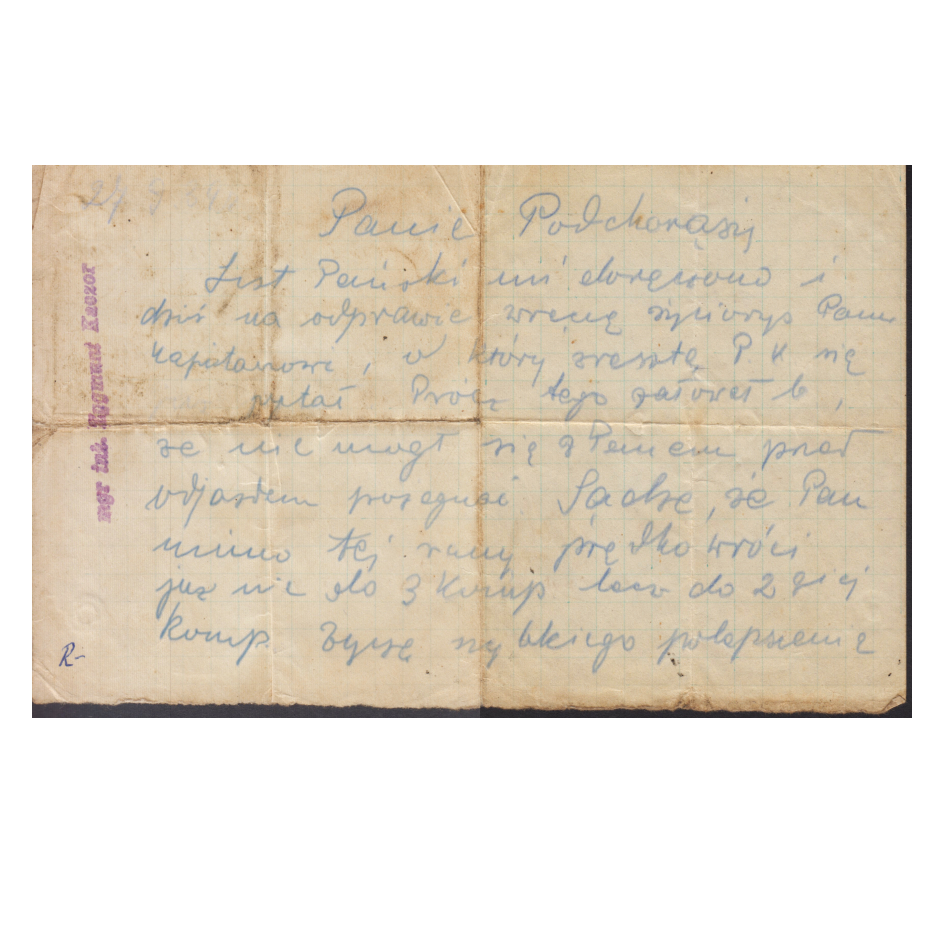 Panie Podchorąży
List Pański mi doręczono i
dziś na odprawie wręczę życiorys Panu
Kapitanowi, o który zresztą P K się
pytał Prócz tego żałował b,
że nie mógł się z Panem przed
odjazdem pożegnać Sądzę, że Pan
mimo tej rany prędko wróci
już nie do 3 Komp lecz do 2 giej
Komp. Życzę szybkiego polepszenia
mgr inż. Zygmunt Kaczor
R-